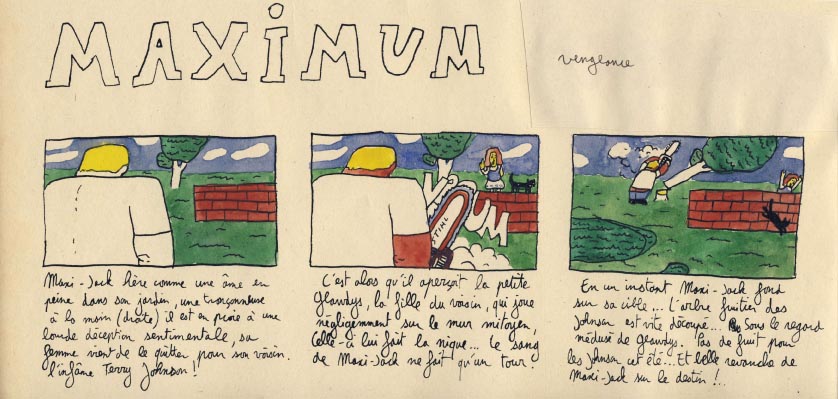 MAXIMUM
vengeance
Maxi-Jack hère comme une âme en
peine dans son jardin, une tronçonneuse
à la main (droite) il est en proie à une
lourde déception sentimentale, sa
femme vient de le quitter pour son voisin.
l'infâme Terry Johnson!
STIHL
UM
C'est alors qu'il aperçoit la petite
Glawdys, la fille du voisin, qui joue
négligemment sur le mur mitoyen,
Celle-ci lui fait la nique... Le sang
de Maxi-Jack ne fait qu'un tour!
En un instant Maxi-Jack fond
sur sa cible... L'arbre fruitier des
Johnson est vite découpé... Sous le regard
médusé de Glawdys. Pas de fruit pour
les Johnson cet été... Et belle revanche de
Maxi-Jack sur le destin!..